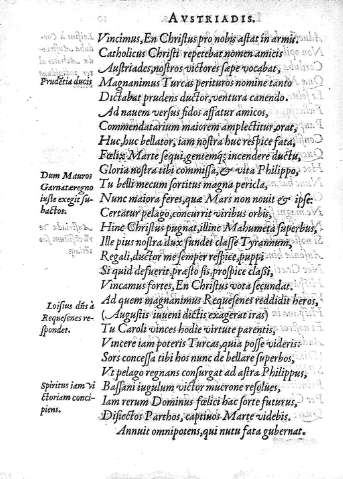 AVSTRIADIS.
Vincimus, En Christus pro nobis astat in armis.
Catholicus Christi repetebat nomen amicis
Austriades, nostros victores sæpe vocabat,
Prudẽtia ducis
Magnanimus Turcas perituros nomine tanto
Dictabat prudens ductor, ventura canendo.
Ad nauem versus fidos affatur amicos,
Commendatarium maiorem amplectitur, orat,
Huc, huc bellator, iam nostra huc respice fata,
Fœlix Marte sequi, gentemq; incendere ductu,
Gloria nostra tibi commissa, & vita Philippo,
Dum Mauros
Garnatæ regno
iuste exegit su-
bactos.
Tu belli mecum sortitus magna pericla,
Nunc maiora feres, quæ Mars non nouit & ipse:
Certatur pelago, concurrit viribus orbis,
Hinc Christus pugnat, illinc Mahumeta superbus,
Ille pius nostra dux fundet classe Tyrannum,
Regali, ductor me semper respice, puppi
Si quid defuerit, præsto sis, prospice classi,
Vincamus fortes, En Christus vota secundat.
Loisius dñs à
Requesenes re-
spondet.
Ad quem magnanimus Requesenes reddidit heros,
(Augustis iuueni dictis exagerat iras)
Tu Caroli vinces hodie virtute parentis,
Vincere iam poteris Turcas, quia posse videris:
Sors concessa tibi hos nunc debellare superbos,
Vt pelago regnans consurgat ad astra Philippus,
Spiritus iam vi
ctoriam conci-
piens.
Bassani iugulum victor mucrone resolues,
Iam rerum Dominus fœlici hac sorte futurus,
Disiectos Parthos, captiuos Marte videbis.
Annuit omnipotens, qui nutu fata gubernat.